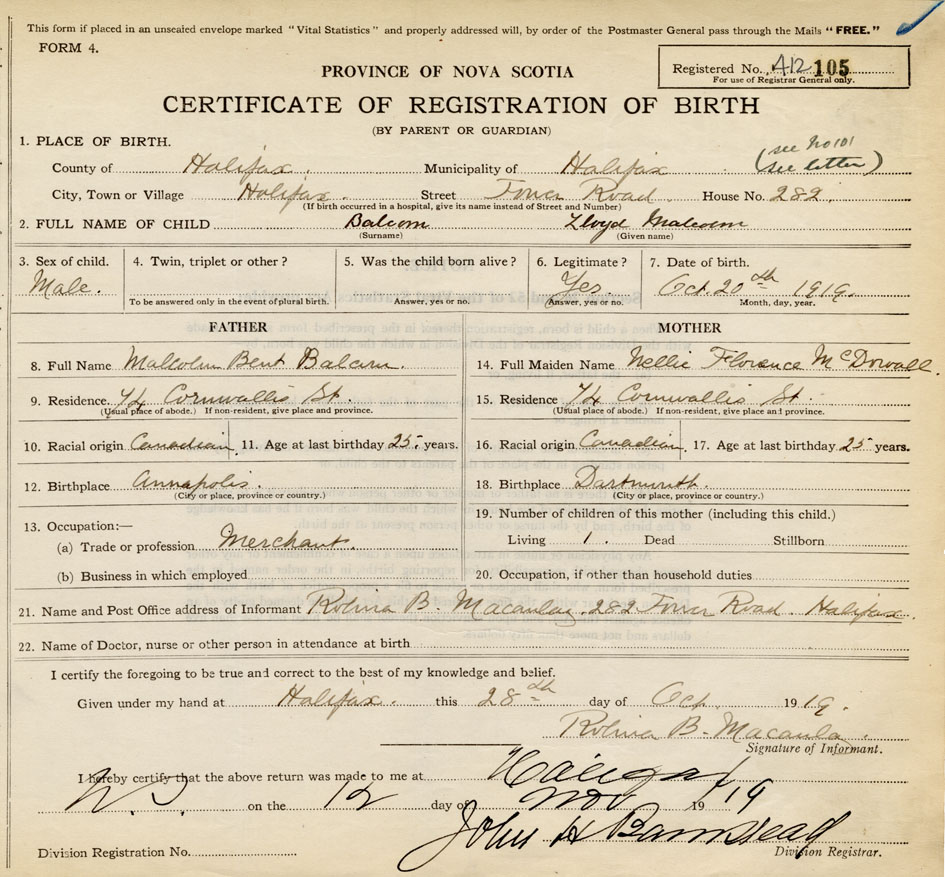 This form if placed in an unsealed envelope marked "Vital Statistics" and properly addressed will, by order of the Postmaster General pass through the Mails "FREE."
FORM 4.
Registered No. 412 105
For use of Registrar General only.
PROVINCE OF NOVA SCOTIA
CERTIFICATE OF REGISTRATION OF BIRTH
(BY PARENT OR GUARDIAN)
1. PLACE OF BIRTH. see No 101
County of Halifax. Municipality of Halifax (See letter)
City, Town or Village Halifax Street Tower Road House No. 282
(If birth occurred in a hospital, give its name instead of Street and Number)
2. FULL NAME OF CHILD Balcom Lloyd Malcolm
(Surname) (Given name)
3. Sex of child. 4. Twin, triplet or other? 5. Was the child born alive? 6. Legitimate? 7. Date of birth.
Male. Yes Oct. 20th 1919.
To be answered only in the event of plural birth. Answer, yes or no. Answer, yes or no. Month, day, year.
FATHER MOTHER
8. Full Name Malcolm Bent Balcom. 14. Full Maiden Name Nellie Florence McDowall.
9. Residence. 74 Cornwallis St. 15. Residence 74 Cornwallis St.
(Usual place of abode.) If non-resident, give place and province. (Usual place of abode.) If non-resident, give place and province.
10. Racial origin Canadian 11. Age at last birthday 25 years. 16. Racial origin Canadian 17. Age at last birthday 25 years.
12. Birthplace Annapolis. 18. Birthplace Dartmouth.
(City or place, province or country.) (City or place, province or country.)
13. Occupation:— 19. Number of children of this mother (including this child.)
(a) Trade or profession Merchant Living 1. Dead Stillborn
(b) Business in which employed 20. Occupation, if other than household duties
21. Name and Post Office address of Informant B. Macaulay. 282 Tower Road. Halifax.
22. Name of Doctor, nurse or other person in attendance at birth
I certify the foregoing to be true and correct to the best of my knowledge and belief.
Given under my hand at Halifax. this 28th day of Oct. 1919.
B. Macaula
Signature of Informant.
I hereby certify that the above return was made to me at Halifax
N.S. on the 12 day of Nov 1919
John H Barnstead
Division Registration No. Division Registrar.